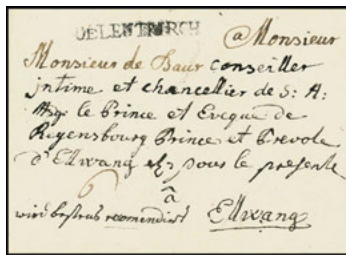 DELEMTKIRCH
a Monsieur
Monsieur de Baur conseiller
jntime et chancellier de S: A:
le Prince et Eveque de
Regensbourg Prince et Prevote
d'Ellwang sous le presente
a
wird bestens recomendirt Ellwang